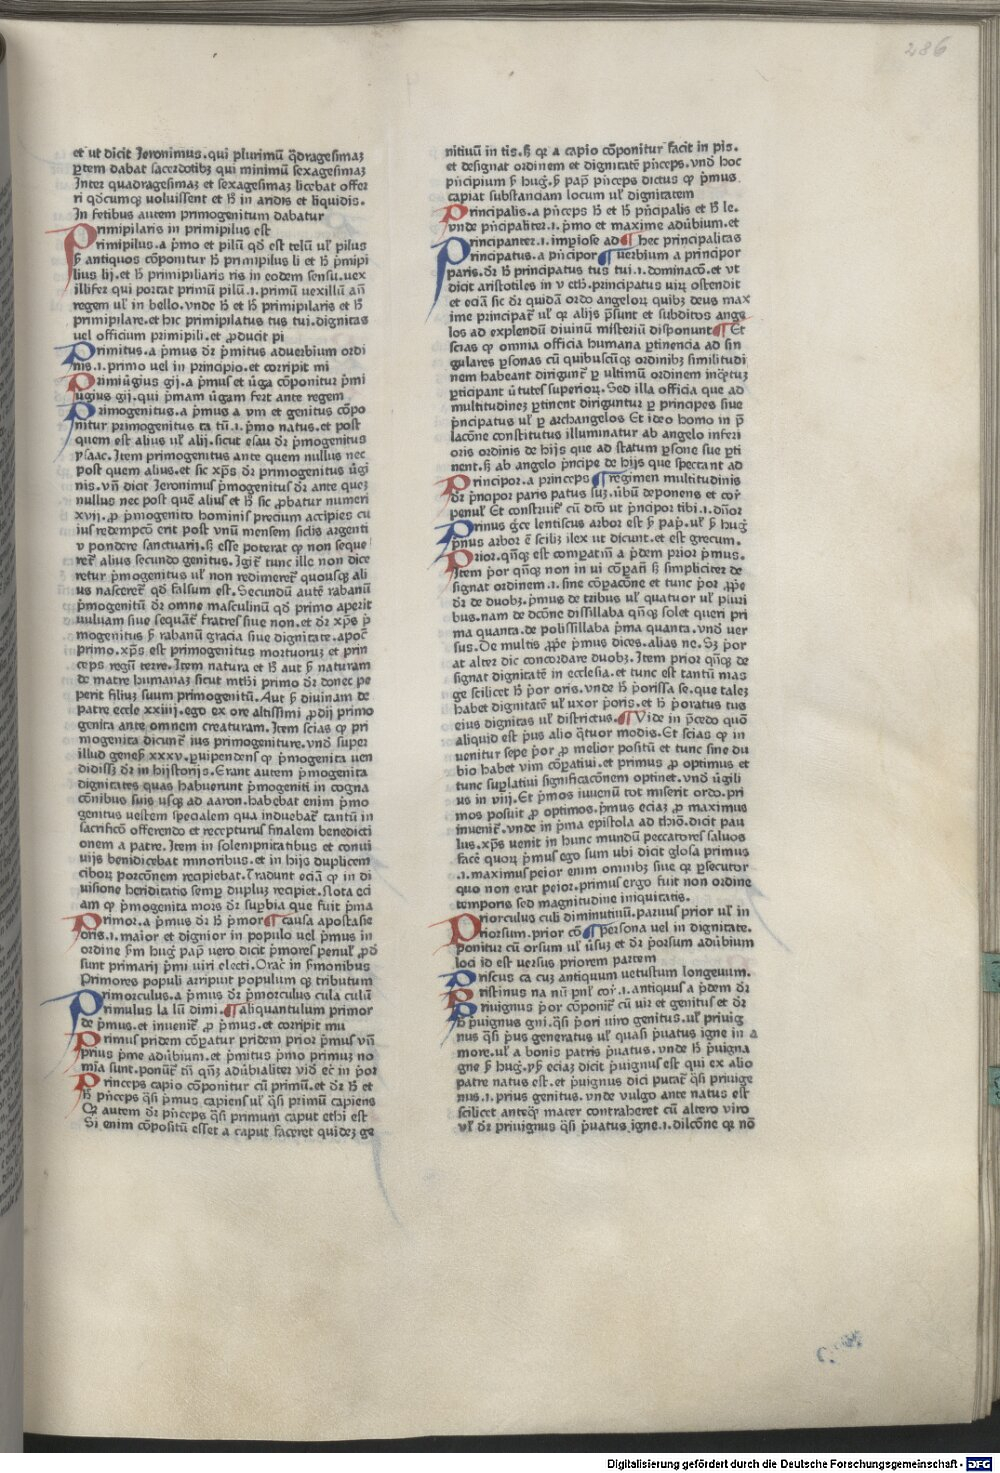 286
et ut dicit Jeronimus.qui plurimū q̄dragesimaꝫ
ꝑtem dabat sacerdotibꝫ qui minimū sexagesimaꝫ
Inter quadragesimaꝫ et sexagesimaꝫ licebat offer
ri qd̄cumqꝫ voluissent et h̄ in aridis et liquidis.
In fetibus autem primogenitum dabatur
Primipilaris in primipilus est
Primipilus.a p̄mo et pilū qd̄ est telū ul̄ pilus
ẜ antiquos cōponitur h̄ primipilus li et h̄ p̄mipi
lius lij.et h̄ primipiliaris ris in eodem sensu.uex
illifer qui portat primū pilū.ı.primū uexillū an̄
regem ul̄ in bello.vnde h̄ et h̄ primipilaris et h̄
primipilare.et hic primipilatus tus tui.dignitas
uel officium primipili.et ꝓducit pi
Primitus.a p̄mus dr̄ p̄mitus aduerbium ordi
nis.ı.primo uel in principio.et corripit mi
Primiūgius gij.a p̄mus et ūga cōponitur p̄mi
ūgius gij.qui p̄mam ūgam fert ante regem
Primogenitus.a p̄mus a um et genitus cōpo
nitur primogenitus ta tū.ı.p̄mo natus.et post
quem est alius ul̄ alij.sicut esau dr̄ p̄mogenitus
ysaac.Item primogenitus ante quem nullus nec
post quem alius.et sic xp̄s dr̄ primogenitus ūgi
nis.vn̄ dicit Jeronimus p̄mogenitus dr̄ ante queꝫ
nullus nec post quē alius et h̄ sic ꝓbatur numeri
xvij.ꝓ p̄mogenito hominis precium accipies cu
ius redempcō erit post vnū mensem siclis argenti
v pondere sanctuarij.ẜꝫ esse poterat qꝫ non seque
ret᷑ alius secundo genitus.Igit᷑ tunc ille non dice
retur p̄mogenitus ul̄ non redimeret᷑ quousqꝫ ali
us nasceret᷑ qd̄ falsum est.Secundū autē rabanū
p̄mogenitū dr̄ omne masculinū qd̄ primo aperit
uuluam siue sequāt᷑ fratres siue non.et dr̄ xp̄s p̄
mogenitus ẜ rabanū gracia siue dignitate.apoc̄
primo.xp̄s est primogenitus mortuoruꝫ et prin
ceps regū terre.Item natura et h̄ aut ẜ naturam
de matre humanaꝫ sicut mthi primo dr̄ donec pe
perit filiuꝫ suum primogenitū.Aut ẜ diuinam de
patre eccle xxiiij.ego ex ore altissimi ꝓdij primo
genita ante omnem creaturam.Item scias qꝫ pri
mogenita dicunt᷑ ius primogeniture.vnd̄ super
illud genes̄ xxxv.ꝑuipendens qꝫ p̄mogenita uen
didissꝫ dr̄ in hijstorijs.Erant autem p̄mogenita
dignitates quas habuerunt p̄mogeniti in cogna
cōnibus suis usqꝫ ad aaron.habebat enim p̄mo
genitus uestem specialem qua induebat᷑ tantū in
sacrificō offerendo et recepturus finalem benedicti
onem a patre.Item in solempnitatibus et conui
uijs benidicebat minoribus.et in hijs duplicem
ciborꝫ porcōnem recipiebat.Tradunt eciā qꝫ in di
uisione heriditatis semꝑ dupluꝫ recipiet.Nota eci
am qꝫ p̄mogenita mors dr̄ suꝑbia que fuit p̄ma
Primor.a p̄mus dr̄ h̄ p̄mor ¶ causa apostasie
oris.ı.maior et dignior in populo uel p̄mus in
ordine ẜm huḡ pap̄ vero dicit p̄mores penul̄ ꝓd̄
sunt primarij p̄mi uiri electi.Orac̄ in ẜmonibus
Primores populi arripuit populum qꝫ tributum
Primorculus.a p̄mus dr̄ p̄morculus cula culū
Primulus la lū dimi. ¶ aliquantulum primor
de p̄mus.et inuenit᷑ ꝓ p̄mus.et corripit mu
Primus pridem cōꝑatur pridem prior p̄mus vn̄
prius p̄me adūbium.et p̄mitus p̄mo primuꝫ no
mīa sunt.ponūt᷑ tn̄ qn̄qꝫ adūbialiter vid̄ ec̄ in p̄or
Princeps capio cōponitur cū primū.et dr̄ h̄ et
h̄ p̄nceps q̄si p̄mus capiens ul̄ q̄si primū capiens
Qꝛ autem dr̄ p̄nceps q̄si primum caput ethi est
Si enim cōpositū esset a caput faceret quideꝫ ge
nitiuū in tis.ẜꝫ qꝛ a capio cōponitur facit in pis.
et designat ordinem et dignitatē p̄nceps.vnd̄ hoc
p̄ncipium ẜ huḡ.ẜ pap̄ p̄nceps dictus qꝫ p̄mus
capiat substanciam locum ul̄ dignitatem
Principalis.a p̄nceps h̄ et h̄ p̄ncipalis et h̄ le.
vnde p̄ncipaliter.ı.p̄mo et maxime adūbium.et
Principanter.ı.impiose ad ¶ hec principalitas
Principatus.a p̄ncipor ¶ uerbium a principor
paris.dr̄ h̄ principatus tus tui.ı.dominacō.et ut
dicit aristotiles in v eth̄.principatus uirꝫ ostendit
et eciā sic dr̄ quidā ordo angelorꝫ quibꝫ deus max
ime principat᷑ ul̄ qꝛ alijs p̄sunt et subditos ange
los ad explendū diuinū misteriū disponunt ¶ Et
scias qꝫ omnia officia humana ꝑtinencia ad sin
gulares ꝑsonas cū quibuscūqꝫ ordinibꝫ similitudi
nem habeant dirigunt᷑ ꝑ ultimū ordinem inqꝫtuꝫ
ꝑticipant ūtutes superiorꝫ.Sed illa officia que ad
multitudineꝫ ꝑtinent diriguntur ꝑ principes siue
p̄ncipatus ul̄ ꝑ archangelos Et ideo homo in p̄
lacōne constitutus illuminatur ab angelo inferi
oris ordinis de hijs que ad statum ꝑsone sue ꝑti
nent.ẜꝫ ab angelo p̄ncipe de hijs que spectant ad
Principor.a princeps ¶ regimen multitudinis
dr̄ p̄ncipor paris patus suꝫ.ūbū deponens et cor̄
penul̄ Et construit᷑ cū dtō ut p̄ncipor tibi.ı.dn̄or
Prinus ḡce lentiscus arbor est ẜ pap̄.ul̄ ẜ huḡ
p̄nus arbor ē scilꝫ ilex ut dicunt.et est grecum.
Prior.qn̄qꝫ est compatiuꝫ a p̄dem prior p̄mus.
Item p̄or qn̄qꝫ non in ui cōꝑan̄ ẜꝫ simpliciter de
signat ordinem.ı.sine cōꝑacōne et tunc p̄or ꝓp̄e
dr̄ de duobꝫ.p̄mus de tribus ul̄ quatuor ul̄ pluri
bus.nam de dcōne dissillaba qn̄qꝫ solet queri pri
ma quanta.de polissillaba p̄ma quanta.vnd̄ uer
sus.De multis ꝓp̄e p̄mus dices.alias ne.Sꝫ p̄or
at alter dic concordare duobꝫ.Item prior qn̄qꝫ de
signat dignitatē in ecclesia.et tunc est tantū mas
ge scilicet h̄ p̄or oris.vnde h̄ p̄orissa se.que taleꝫ
habet dignitatē ul̄ uxor p̄oris.et h̄ p̄oratus tus
eius dignitas ul̄ districtus. ¶ Vide in p̄cedo quō
aliquid est p̄us alio q̄tuor modis.Et scias qꝫ in
uenitur sepe p̄or ꝓ melior positū et tunc sine du
bio habet vim cōꝑatiui.et primus ꝓ optimus et
tunc suꝑlatiui significacōnem optinet.vnd̄ ūgili
us in viij.Et p̄mos iuuenū tot miserit ordo.pri
mos posuit ꝓ optimos.p̄mus eciaꝫ ꝓ maximus
inuenit᷑.vnde in p̄ma epistola ad thiō.dicit pau
lus.xp̄s uenit in hunc mundū peccatores saluos
facē quorꝫ p̄mus ego sum ubi dicit glosa primus
.ı.maximus peior enim omnibꝫ siue qꝛ ꝑsecutor
quo non erat peior.primus ergo fuit non ordine
temporis sed magnitudine iniquitatis.
Priorculus culi diminutiuū.paruus prior ul̄ in
Priorsum.prior cō ¶ persona uel in dignitate.
ponitur cū orsum ul̄ ūsuꝫ et dr̄ p̄orsum adūbium
loci id est uersus priorem partem
Priscus ca cuꝫ antiquum uetustum longeuum.
Pristinus na nū pnl̄ cor̄.ı.antiquus a p̄dem dr̄
Priuignus p̄or cōponit᷑ cū uir et genitus et dr̄
h̄ p̄uignus gni.q̄si p̄ori uiro genitus.ul̄ priuig
nus q̄si p̄us generatus ul̄ quasi p̄uatus igne in a
more.ul̄ a bonis patris p̄uatus.vnde h̄ p̄uigna
gne ẜ huḡ.yẜ eciaꝫ dicit p̄uignus est qui ex alio
patre natus est.et p̄uignus dici putat᷑ q̄si priuige
nus.ı.prius genitus.vnde vulgo ante natus est
scilicet anteqꝫ mater contraheret cū altero viro
vl̄ dr̄ priuignus q̄si p̄uatus igne.ı.dilcōne qꝛ nō
Digitalisierung gefördert durch die Deutsche Forschungsgemeinschaft - DFG